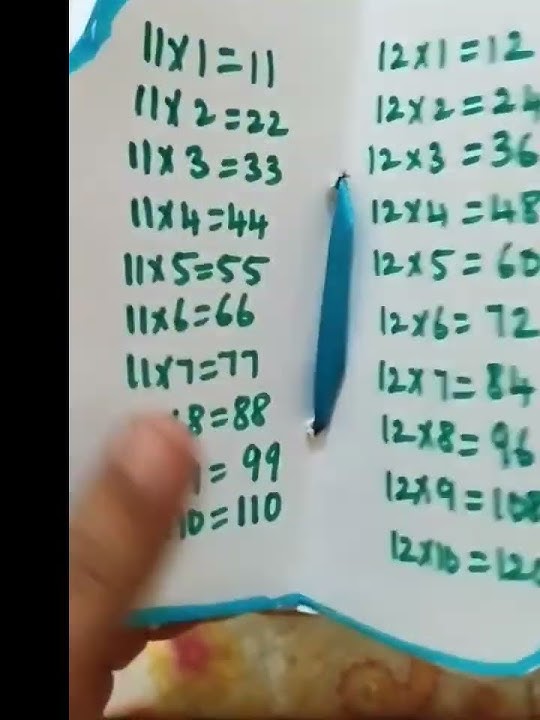 11x1=11
11x2=22
11x3=33
11x4=44
11x5=55
11x6=66
11x7=77
8=88
= 99
10=110
12x1=12
12x2=24
12x3=36
12x4=48
12x5=60
12x6=72
12x7=84
12x8=96
12x9=108
12x10=12